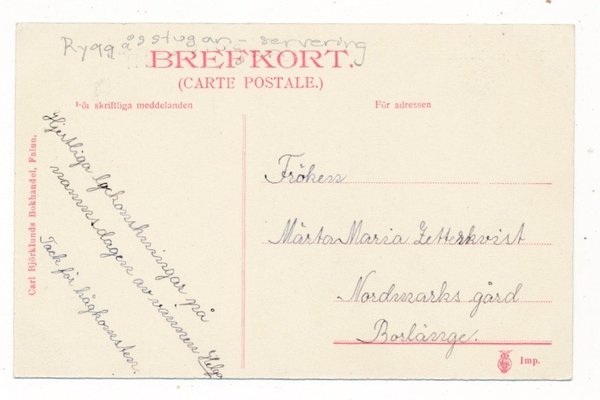 Ryggåsstugan - servering
BREFKORT.
(CARTE POSTALE.)
För skriftliga meddelanden
För adressen
Carl Björklunds Bokhandel, Falun.
Hjertliga lyckönskningar på
namnsdagen av vännen Helga
Tack för hågkomsten.
Fröken
Märta Maria Zetterkvist
Nordmarks gård
Borlänge.
Imp.